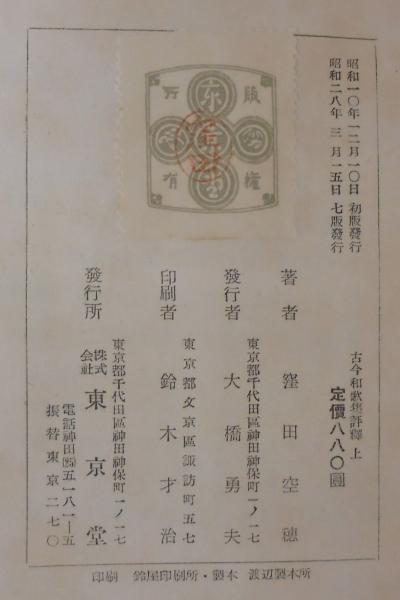 昭和一〇年一二月一〇日 初版發行
昭和二八年 三月一五日 七版發行
古今和歌集評釋 上
定價八八〇圓
著者 窪田空穗
東京都千代田區神田神保町一ノ一七
發行者 大橋勇夫
東京都文京區諏訪町五七
印刷者 鈴木才治
東京都千代田區神田神保町一ノ一七
發行所 株式會社 東京堂
電話神田㉕五一八一—五
振替東京二七〇
印刷 鈴屋印刷所・製本 渡辺製本所
版權
東京堂
所有